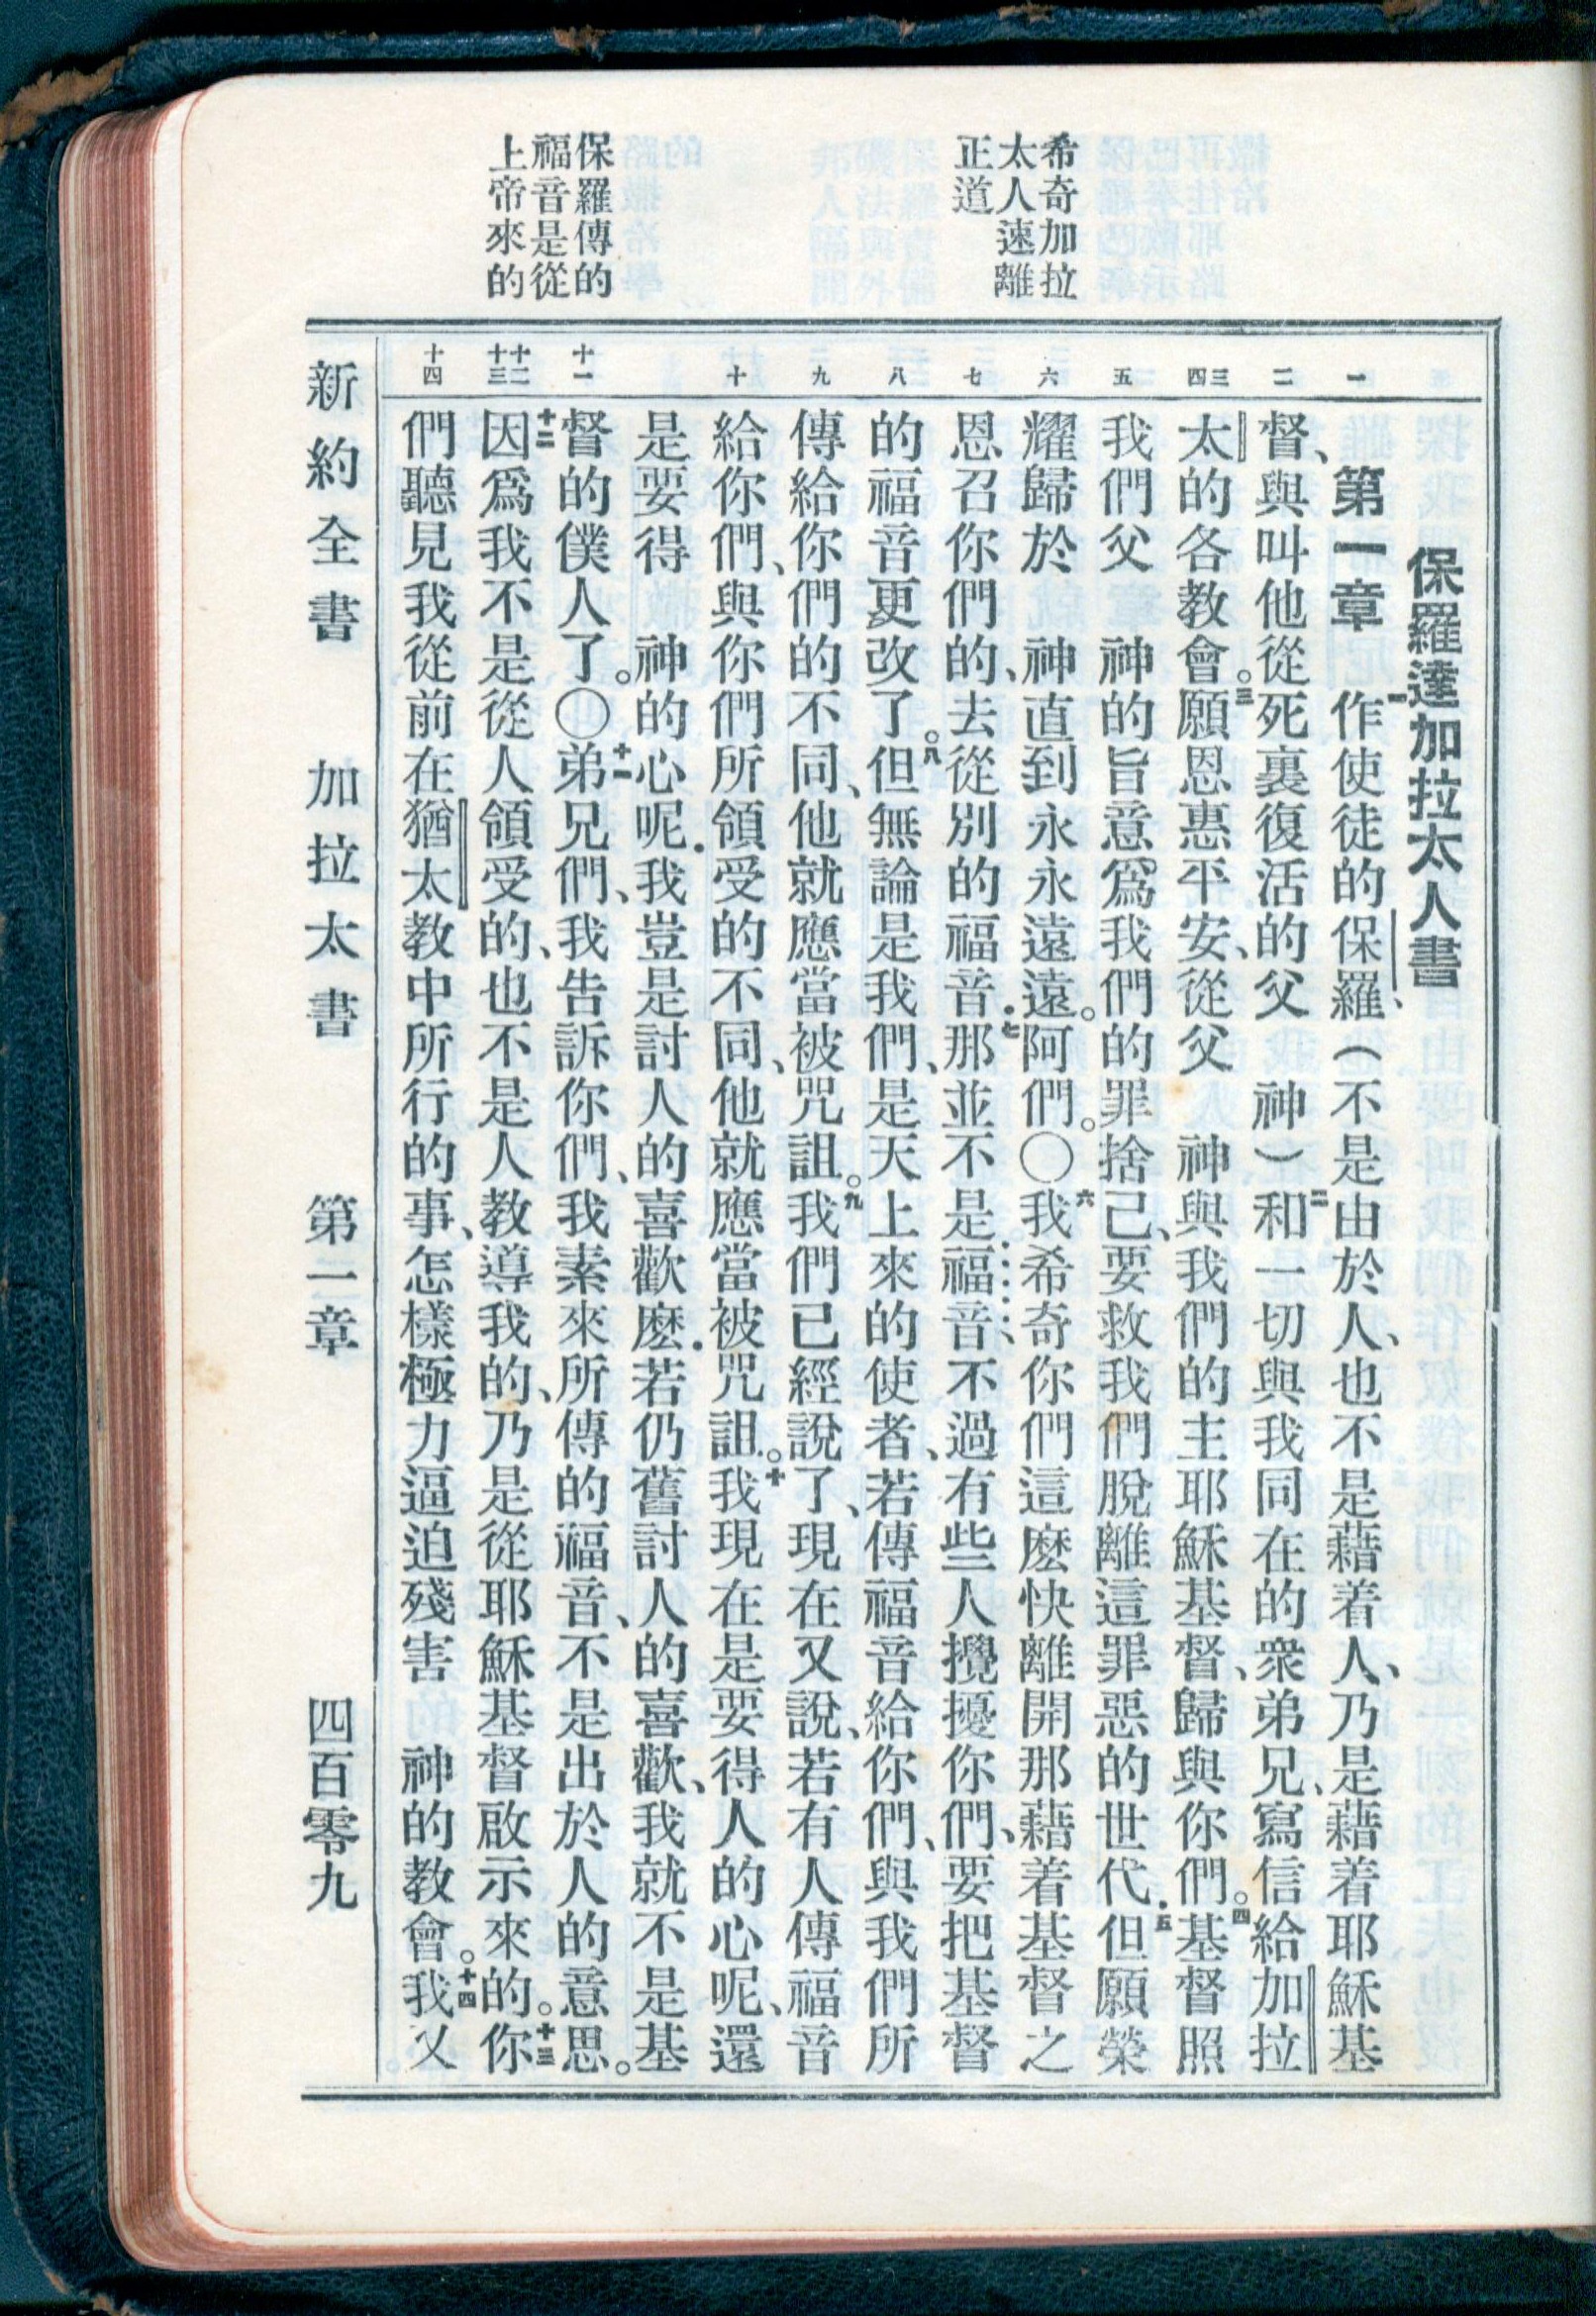 希奇加拉
太人速離
正道
保羅傳的
福音是從
上帝來的
一 二 三 四 五 六 七 八 九 十 十一 十二 十三 十四
保羅達加拉太人書
第一章 一作使徒的保羅、（不是由於人、也不是藉着人、乃是藉着耶穌基
督、與叫他從死裏復活的父 神）二和一切與我同在的衆弟兄、寫信給加拉
太的各教會。三願恩惠平安、從父 神與我們的主耶穌基督、歸與你們。四基督照
我們父 神的旨意、爲我們的罪捨己、要救我們脫離這罪惡的世代．五但願榮
耀歸於 神直到永永遠遠。阿們。〇六我希奇你們這麽快離開那藉着基督之
恩召你們的、去從別的福音．七那並不是福音、不過有些人攪擾你們、要把基督
的福音更改了。八但無論是我們、是天上來的使者、若傳福音給你們、與我們所
傳給你們的不同、他就應當被咒詛。九我們已經說了、現在又說、若有人傳福音
給你們、與你們所領受的不同、他就應當被咒詛。十我現在是要得人的心呢、還
是要得 神的心呢．我豈是討人的喜歡麽．若仍舊討人的喜歡、我就不是基
督的僕人了。〇十一弟兄們、我告訴你們、我素來所傳的福音、不是出於人的意思。
十二因爲我不是從人領受的、也不是人教導我的、乃是從耶穌基督啟示來的。十三你
們聽見我從前在猶太教中所行的事、怎樣極力逼迫殘害 神的教會。十四我又
新約全書 加拉太書 第一章 四百零九